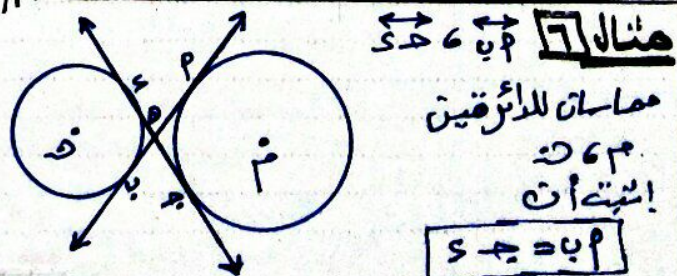 مثال [٦] أب ، حـ د
مماسان للدائرتين
م ، ن
إثبت أن
أب = جـ د
د
أ
هـ
ن
م
ب
جـ